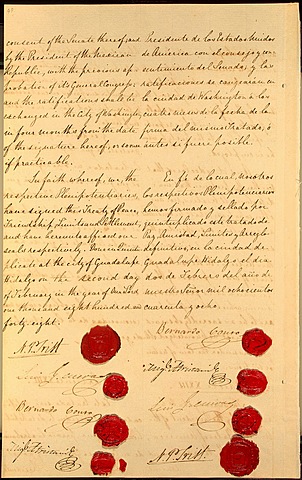 consent of the Senate thereof; and
by the President of the Mexican
Republic, with the previous ap-
probation of its General Congress;
and the ratifications shall be
exchanged in the City of Washington,
in four months from the date
of the signature hereof, or sooner
if practicable.
In faith whereof, we, the
respective Plenipotentiaries,
have signed this Treaty of Peace,
Friendship, Limits and Settlement,
and have hereunto affixed our
seals respectively. Done in Quintu-
plicate at the City of Guadalupe
Hidalgo on the second day
of February in the year of Our Lord
one thousand eight hundred and
forty-eight.
N. P. Trist
Luis G. Cuevas
Bernardo Couto
Migl. Atristain
Presidente de los Estados Unidos
de America con el consejo y con-
sentimiento del Senado; y las
ratificaciones se canjearán en
la ciudad de Washington a los
cuatro meses de la fecha de la
firma del mismo Tratado, ó
antes si fuere posible.
En fe de lo cual, nosotros
los respectivos Plenipotenciarios
hemos firmado y sellado por
quintuplicado este tratado de
Paz, Amistad, Limites y Arreglo
definitivo, en la ciudad de
Guadalupe Hidalgo el dia
dos de Febrero del año de
nuestro Señor mil ochocientos
cuarenta y ocho.
Bernardo Couto
Migl. Atristain
Luis G. Cuevas
N. P. Trist